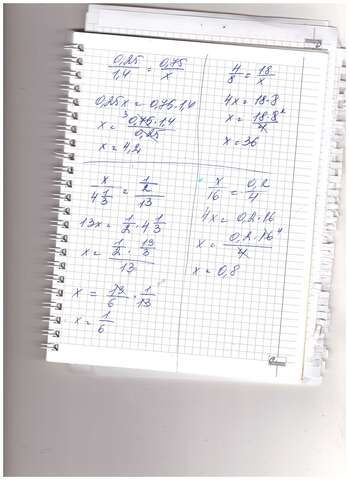 0,25/1,4 = 0,75/x
0,25x = 0,75·1,4
x = 0,75·1,4/0,25
x = 4,2
4/8 = 18/x
4x = 18·8
x = 18·8²/4
x = 36
x/4 1/3 = 1/2/13
13x = 1/2·4 1/3
x = 1/2·13/3/13
x = 13/6·1/13
x = 1/6
x/16 = 0,2/4
4x = 0,2·16
x = 0,2·16⁴/4
x = 0,8